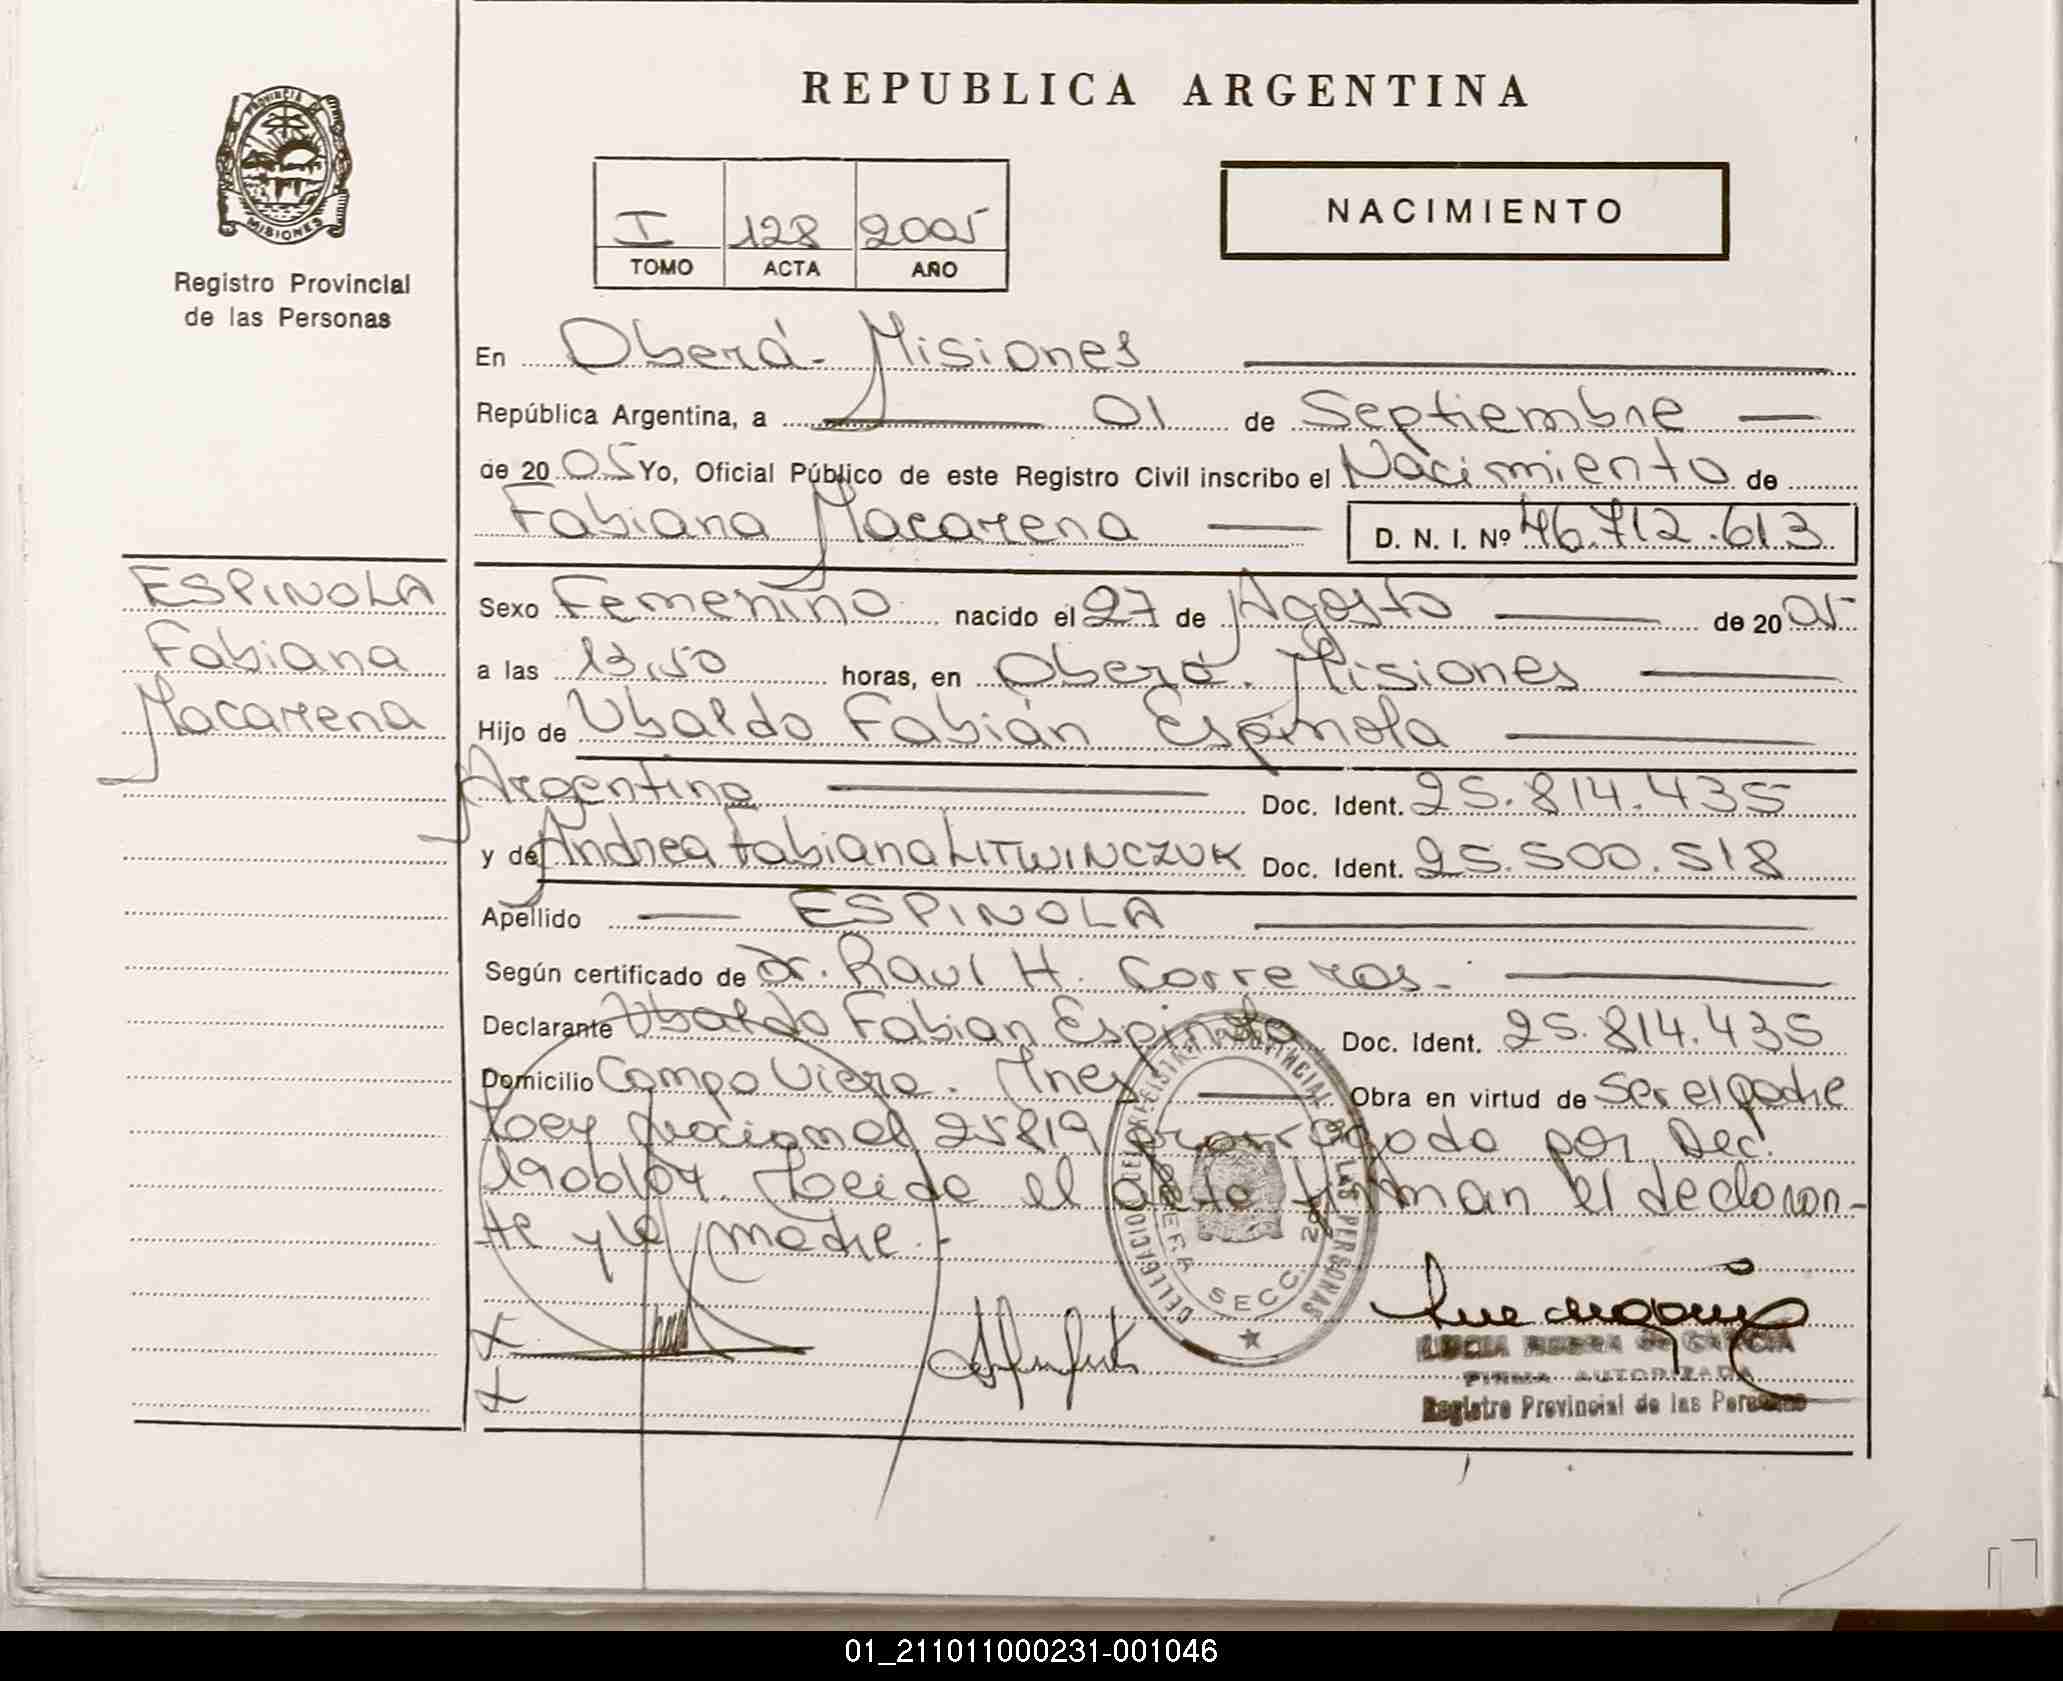 REPUBLICA ARGENTINA
PROVINCIA DE
MISIONES
Registro Provincial
de las Personas
I 128 2005
TOMO ACTA AÑO
NACIMIENTO
En Oberá - Misiones
República Argentina, a 01 de Septiembre
de 2005 Yo, Oficial Público de este Registro Civil inscribo el Nacimiento de
Fabiana Macarena D. N. I. Nº 46.712.613
ESPINOLA
Fabiana
Macarena
Sexo Femenino nacido el 27 de Agosto de 2005
a las 13,50 horas, en Oberá. Misiones
Hijo de Ubaldo Fabián Espínola
Argentina Doc. Ident. 25.814.435
y de Andrea Fabiana LITWINCZUK Doc. Ident. 25.500.518
Apellido ESPINOLA
Según certificado de Dr. Raul H. Correras.
Declarante Ubaldo Fabian Espinola Doc. Ident. 25.814.435
Domicilio Campo Viera. Mnes Obra en virtud de Ser el padre
Ley Nacional 25819 prorrogada por Dec.
1906/04. Leida el acta firman el declaran-
te y la madre.-
DELEGACION DEL REGISTRO PROVINCIAL DE LAS PERSONAS
SECC.
GARCIA
FIRMA AUTORIZADA
Registro Provincial de las Personas
01_211011000231-001046